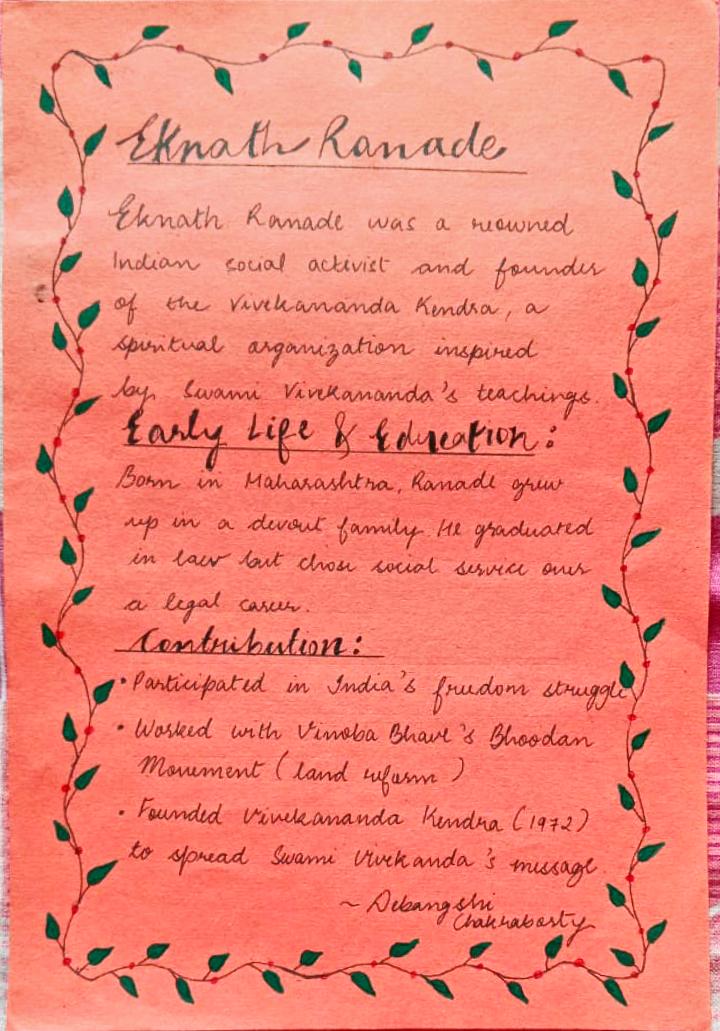 Eknath Ranade
Eknath Ranade was a reowned
Indian social activist and founder
of the Vivekananda Kendra, a
spiritual organization inspired
by Swami Vivekananda's teachings.
Early Life & Education:
Born in Maharashtra, Ranade grew
up in a devout family. He graduated
in law but chose social service over
a legal career.
Contribution:
• Participated in India's freedom struggle
• Worked with Vinoba Bhave's Bhoodan
Movement (land reform)
• Founded Vivekananda Kendra (1972)
to spread Swami Vivekanda's message.
~ Debangshi
Chakraborty